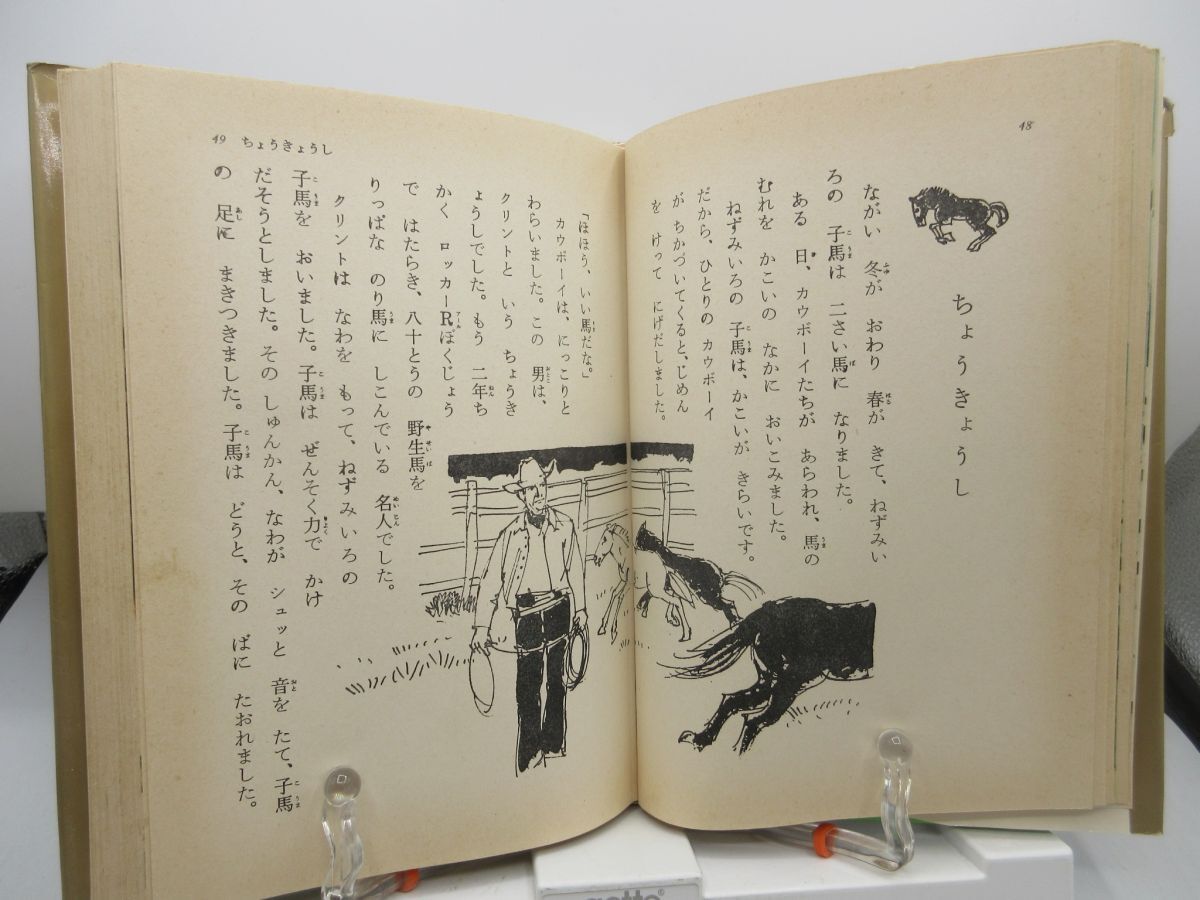 48
ちょうきょうし
ながい 冬が おわり 春が きて、ねずみい
ろの 子馬は 二さい馬に なりました。
ある 日、カウボーイたちが あらわれ、馬の
むれを かこいの なかに おいこみました。
ねずみいろの 子馬は、かこいが きらいです。
だから、ひとりの カウボーイ
が ちかづいてくると、じめん
を けって にげだしました。
49 ちょうきょうし
「ほほう、いい馬だな。」
カウボーイは、にっこりと
わらいました。この 男は、
クリントと いう ちょうき
ょうしでした。もう 二年ち
かく ロッカーRぼくじょう
で はたらき、八十とうの 野生馬を
りっぱな のり馬に しこんでいる 名人でした。
クリントは なわを もって、ねずみいろの
子馬を おいました。子馬は ぜんそく力で かけ
だそうとしました。その しゅんかん、なわが シュッと 音を たて、子馬
の 足に まきつきました。子馬は どうと、その ばに たおれました。